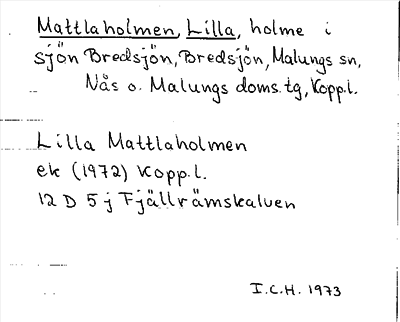 Mattlaholmen, Lilla, holme i
sjön Bredsjön, Bredsjön, Malungs sn,
Nås o. Malungs doms.tg, Kopp.l.
Lilla Mattlaholmen
ek (1972) Kopp.l.
12 D 5 j Fjällrämskalven
I.C.H. 1973